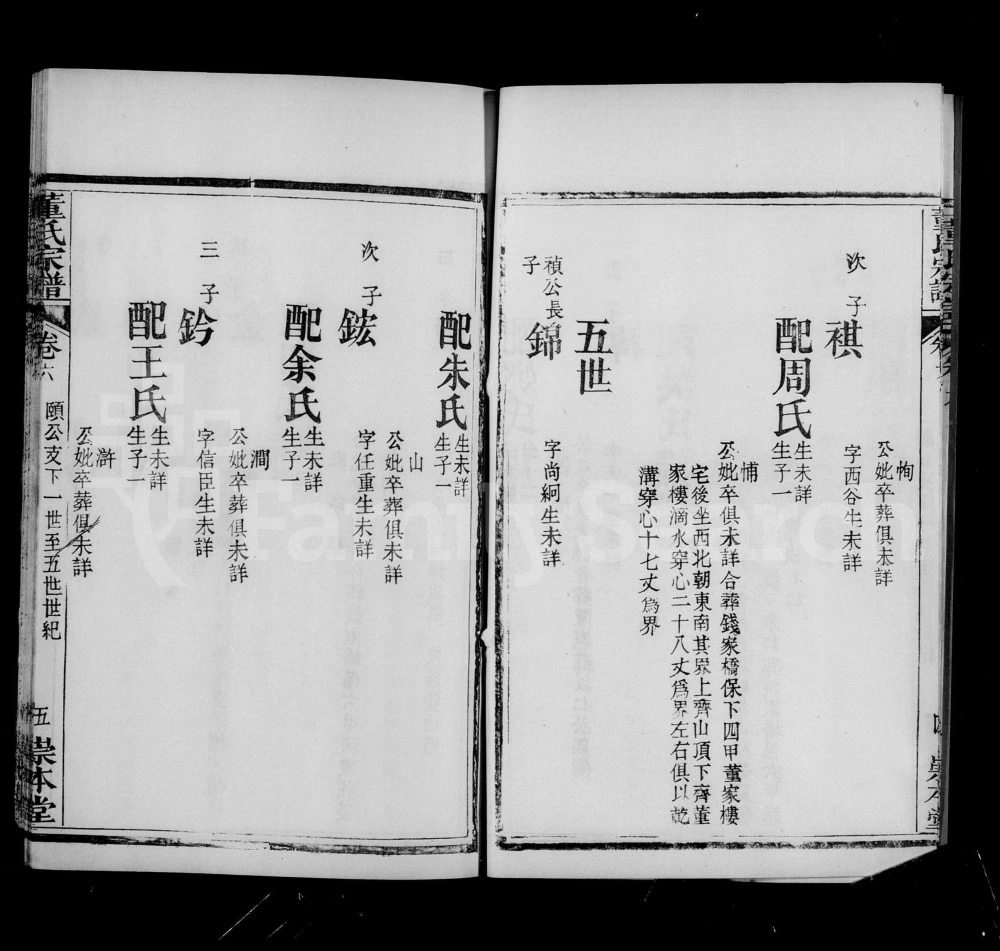 恂
公妣卒葬俱未詳
次子
祺
字西谷生未詳
配周氏
生未詳
生子一
悑
公妣卒俱未詳合葬錢家橋保下四甲董家樓
宅後坐西北朝東南其界上齊山頂下齊董
家樓滴水穿心二十八丈爲界左右俱以乾
溝穿心十七丈爲界
五世
禎公長
子
錦
字尚絅生未詳
配朱氏
生未詳
生子一
山
公妣卒葬俱未詳
次子
鋐
字任重生未詳
配余氏
生未詳
生子一
澗
公妣卒葬俱未詳
三子
鈐
字信臣生未詳
配王氏
生未詳
生子一
滸
公妣卒葬俱未詳
董氏宗譜
卷六
頤公支下一世至五世世紀
五
崇本堂
FamilySearch